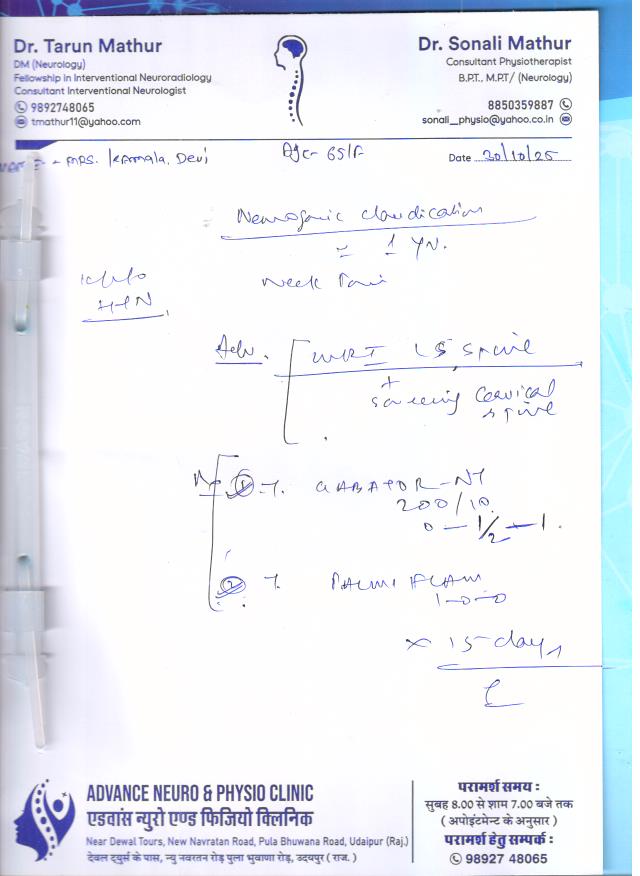 Dr. Tarun Mathur
DM (Neurology)
Fellowship in Interventional Neuroradiology
Consultant Interventional Neurologist
9892748065
tmathur11@yahoo.com
Dr. Sonali Mathur
Consultant Physiotherapist
B.P.T., M.P.T/ (Neurology)
8850359887
sonali_physio@yahoo.co.in
- MRS. Kamala. Devi
Age- 65/F
Date 30/10/25
Neurogenic claudication
1 yr.
Neck Pain
K/c/o
HTN
Adv. MRI LS spine
+
screening Cervical
spine
① T. GABATOR-NT
200/10
0 - 1/2 - 1.
② T. PALMIFLAM
1-0-0
x 15 days
ADVANCE NEURO & PHYSIO CLINIC
एडवांस न्युरो एण्ड फिजियो क्लिनिक
Near Dewal Tours, New Navratan Road, Pula Bhuwana Road, Udaipur (Raj.)
देवल ट्युर्स के पास, न्यु नवरतन रोड़ पुला भुवाणा रोड़, उदयपुर ( राज. )
परामर्श समय :
सुबह 8.00 से शाम 7.00 बजे तक
( अपोइंटमेन्ट के अनुसार )
परामर्श हेतु सम्पर्क :
98927 48065